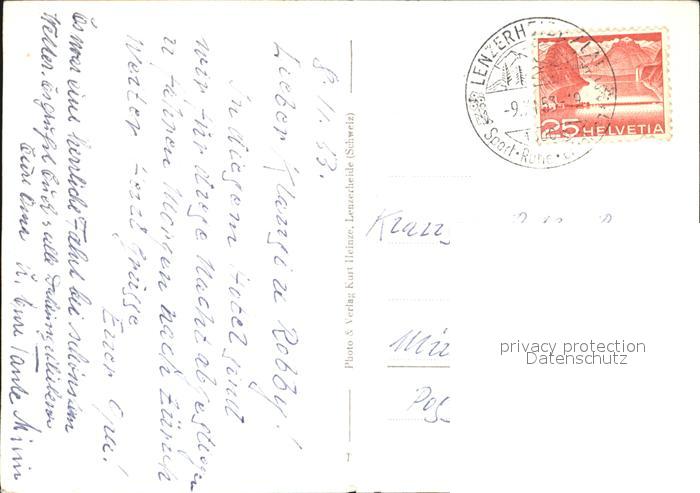 8. 11. 53.
Lieber Klausi u Robby!
In diesem Hotel sind
wir für diese Nacht abgestiegen
u fahren Morgen nach Zürich
weiter
Grüsse
Euer Opa!
Es war eine herrliche Fahrt bei schönstem
Wetter. es grüßt Euch u. alle
Eure Oma u. Eure Tante Mimi
Photo & Verlag Kurt Heinze, Lenzerheide (Schweiz)
7
LENZERHEIDE
-9. 53-
Sport · Ruhe ·
25 HELVETIA
privacy protection
Datenschutz